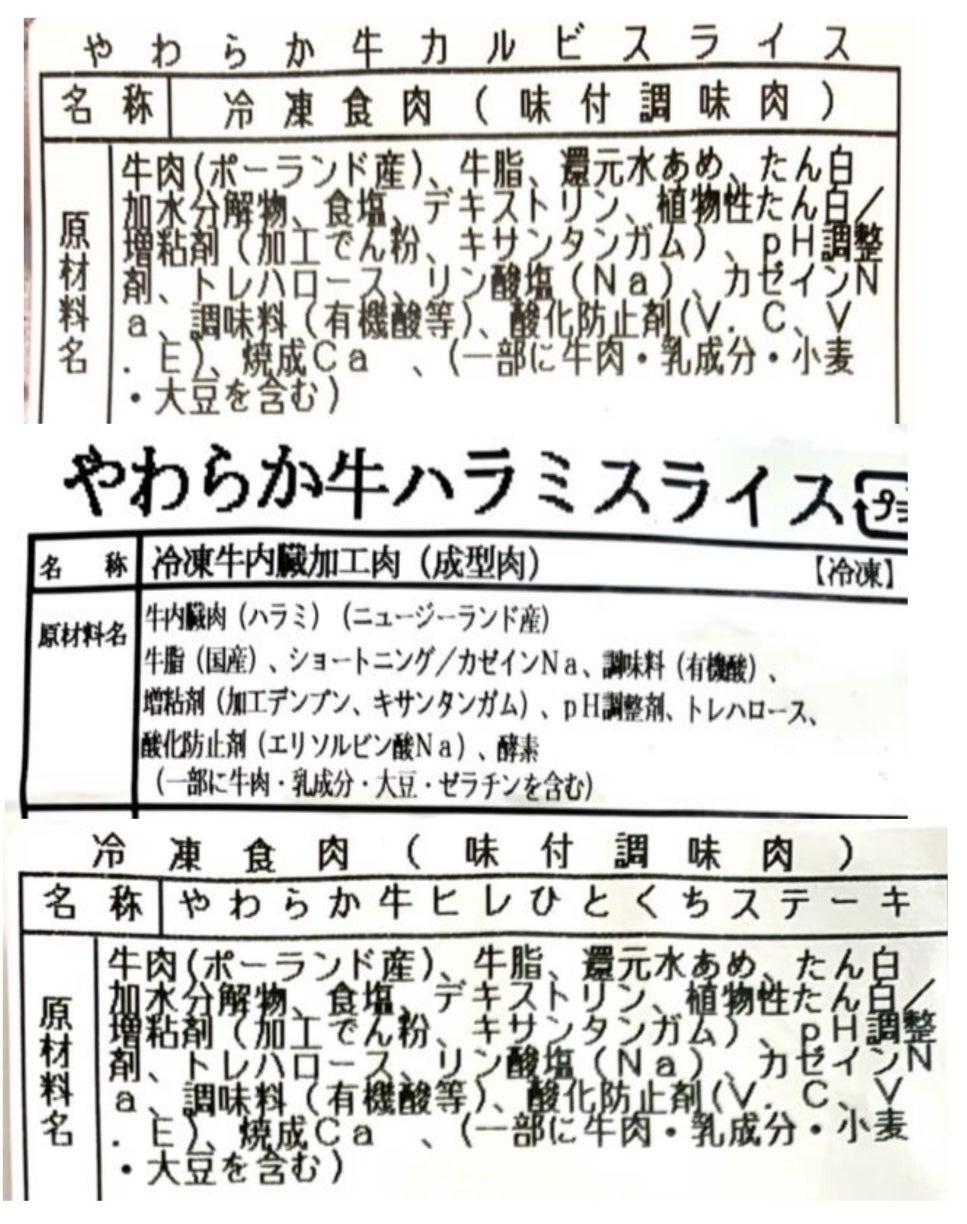 やわらか牛カルビスライス
名称 冷凍食肉(味付調味肉)
原材料名
牛肉(ポーランド産)、牛脂、還元水あめ、たん白
加水分解物、食塩、デキストリン、植物性たん白/
増粘剤(加工でん粉、キサンタンガム)、pH調整
剤、トレハロース、リン酸塩(Na)、カゼインN
a、調味料(有機酸等)、酸化防止剤(V.C、V
.E)、焼成Ca 、(一部に牛肉・乳成分・小麦
・大豆を含む)
やわらか牛ハラミスライス
名称 冷凍牛内臓加工肉(成型肉) 【冷凍】
原材料名
牛内臓肉(ハラミ)(ニュージーランド産)
牛脂(国産)、ショートニング/カゼインNa、調味料(有機酸)、
増粘剤(加工デンプン、キサンタンガム)、pH調整剤、トレハロース、
酸化防止剤(エリソルビン酸Na)、酵素
(一部に牛肉・乳成分・大豆・ゼラチンを含む)
冷凍食肉(味付調味肉)
名称 やわらか牛ヒレひとくちステーキ
原材料名
牛肉(ポーランド産)、牛脂、還元水あめ、たん白
加水分解物、食塩、デキストリン、植物性たん白/
増粘剤(加工でん粉、キサンタンガム)、pH調整
剤、トレハロース、リン酸塩(Na)、カゼインN
a、調味料(有機酸等)、酸化防止剤(V.C、V
.E)、焼成Ca 、(一部に牛肉・乳成分・小麦
・大豆を含む)